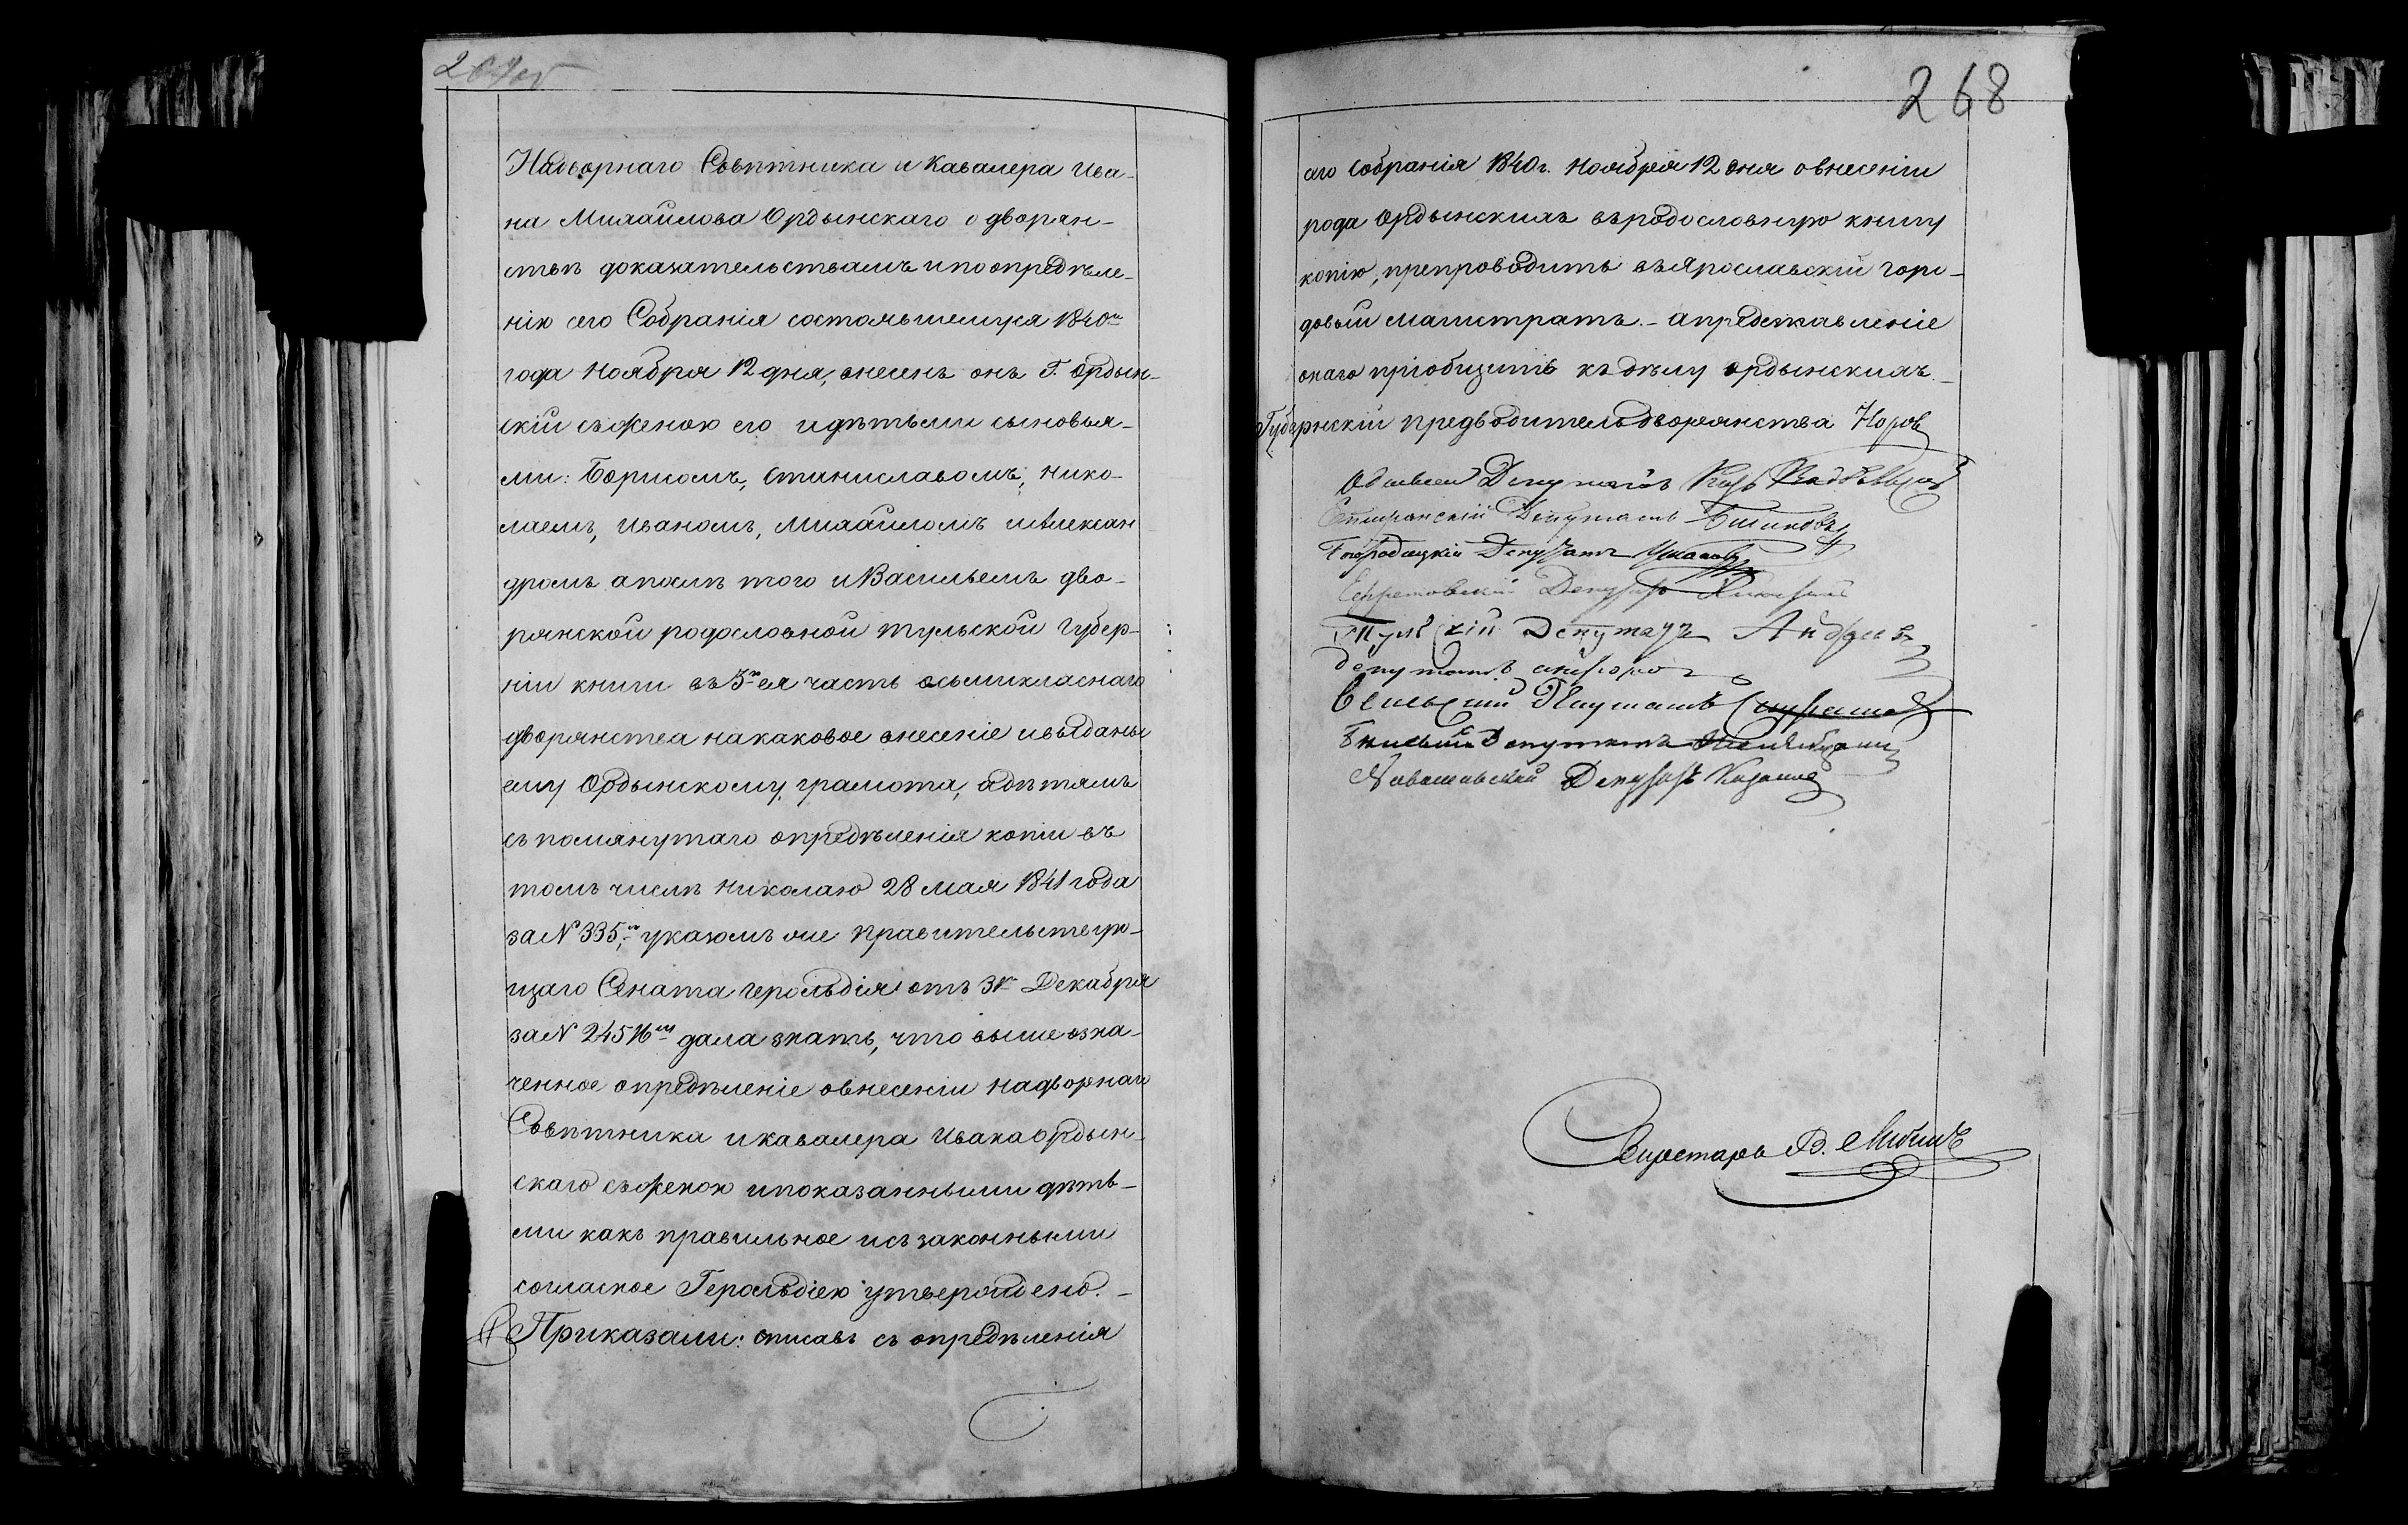 267об
Надворнаго Совѣтника и Кавалера Ива-
на Михайлова Ордынскаго о дворян-
ствѣ доказательствамъ и по опредѣле-
нію сего Собранія состоявшемуся 1840го
года Ноября 12 дня, внесенъ онъ Г. Ордын-
скій съ женою его и дѣтьми сыновья-
ми: Борисомъ, Станиславомъ, Нико-
лаемъ, Иваномъ, Михайломъ и Алексан
дромъ а послѣ того и Васильемъ дво-
рянской родословной Тульской Губер-
ніи книги въ 3ю ея часть осьмикласнаго
дворянства на каковое внесеніе и выданы
ему Ордынскому, грамота, а дѣтямъ
съ помянутаго опредѣленія копіи въ
томъ числѣ Николаю 28 мая 1841 года
за № 335, указомъ же Правительствую-
щаго Сената Герольдія отъ 31го Декабря
за № 24516мъ дала знать, что выше озна-
ченное опредѣленіе о внесеніи надворнаго
Совѣтника и кавалера Ивана Ордын-
скаго съ женою и показанными дѣть-
ми какъ правильное и съ законными
согласное Герольдіею утверждено. -
Приказали: списавъ съ опредѣленія
268
сего Собранія 1840 г. Ноября 12 дня о внесеніи
рода Ордынскихъ въ родословную книгу
копію, препроводить въ Ярославскій горо-
довый магистратъ. - а представленіе
онаго пріобщить къ дѣлу Ордынскихъ. -
Губернскій предводитель дворянства Норов
Депутатъ Князь
Епифанскій Депутатъ
Богородицкій Депутатъ
Ефремовскій Депутатъ
Тульскій Депутатъ
Депутатъ
Депутатъ
Депутатъ
Депутатъ
Секретарь В.